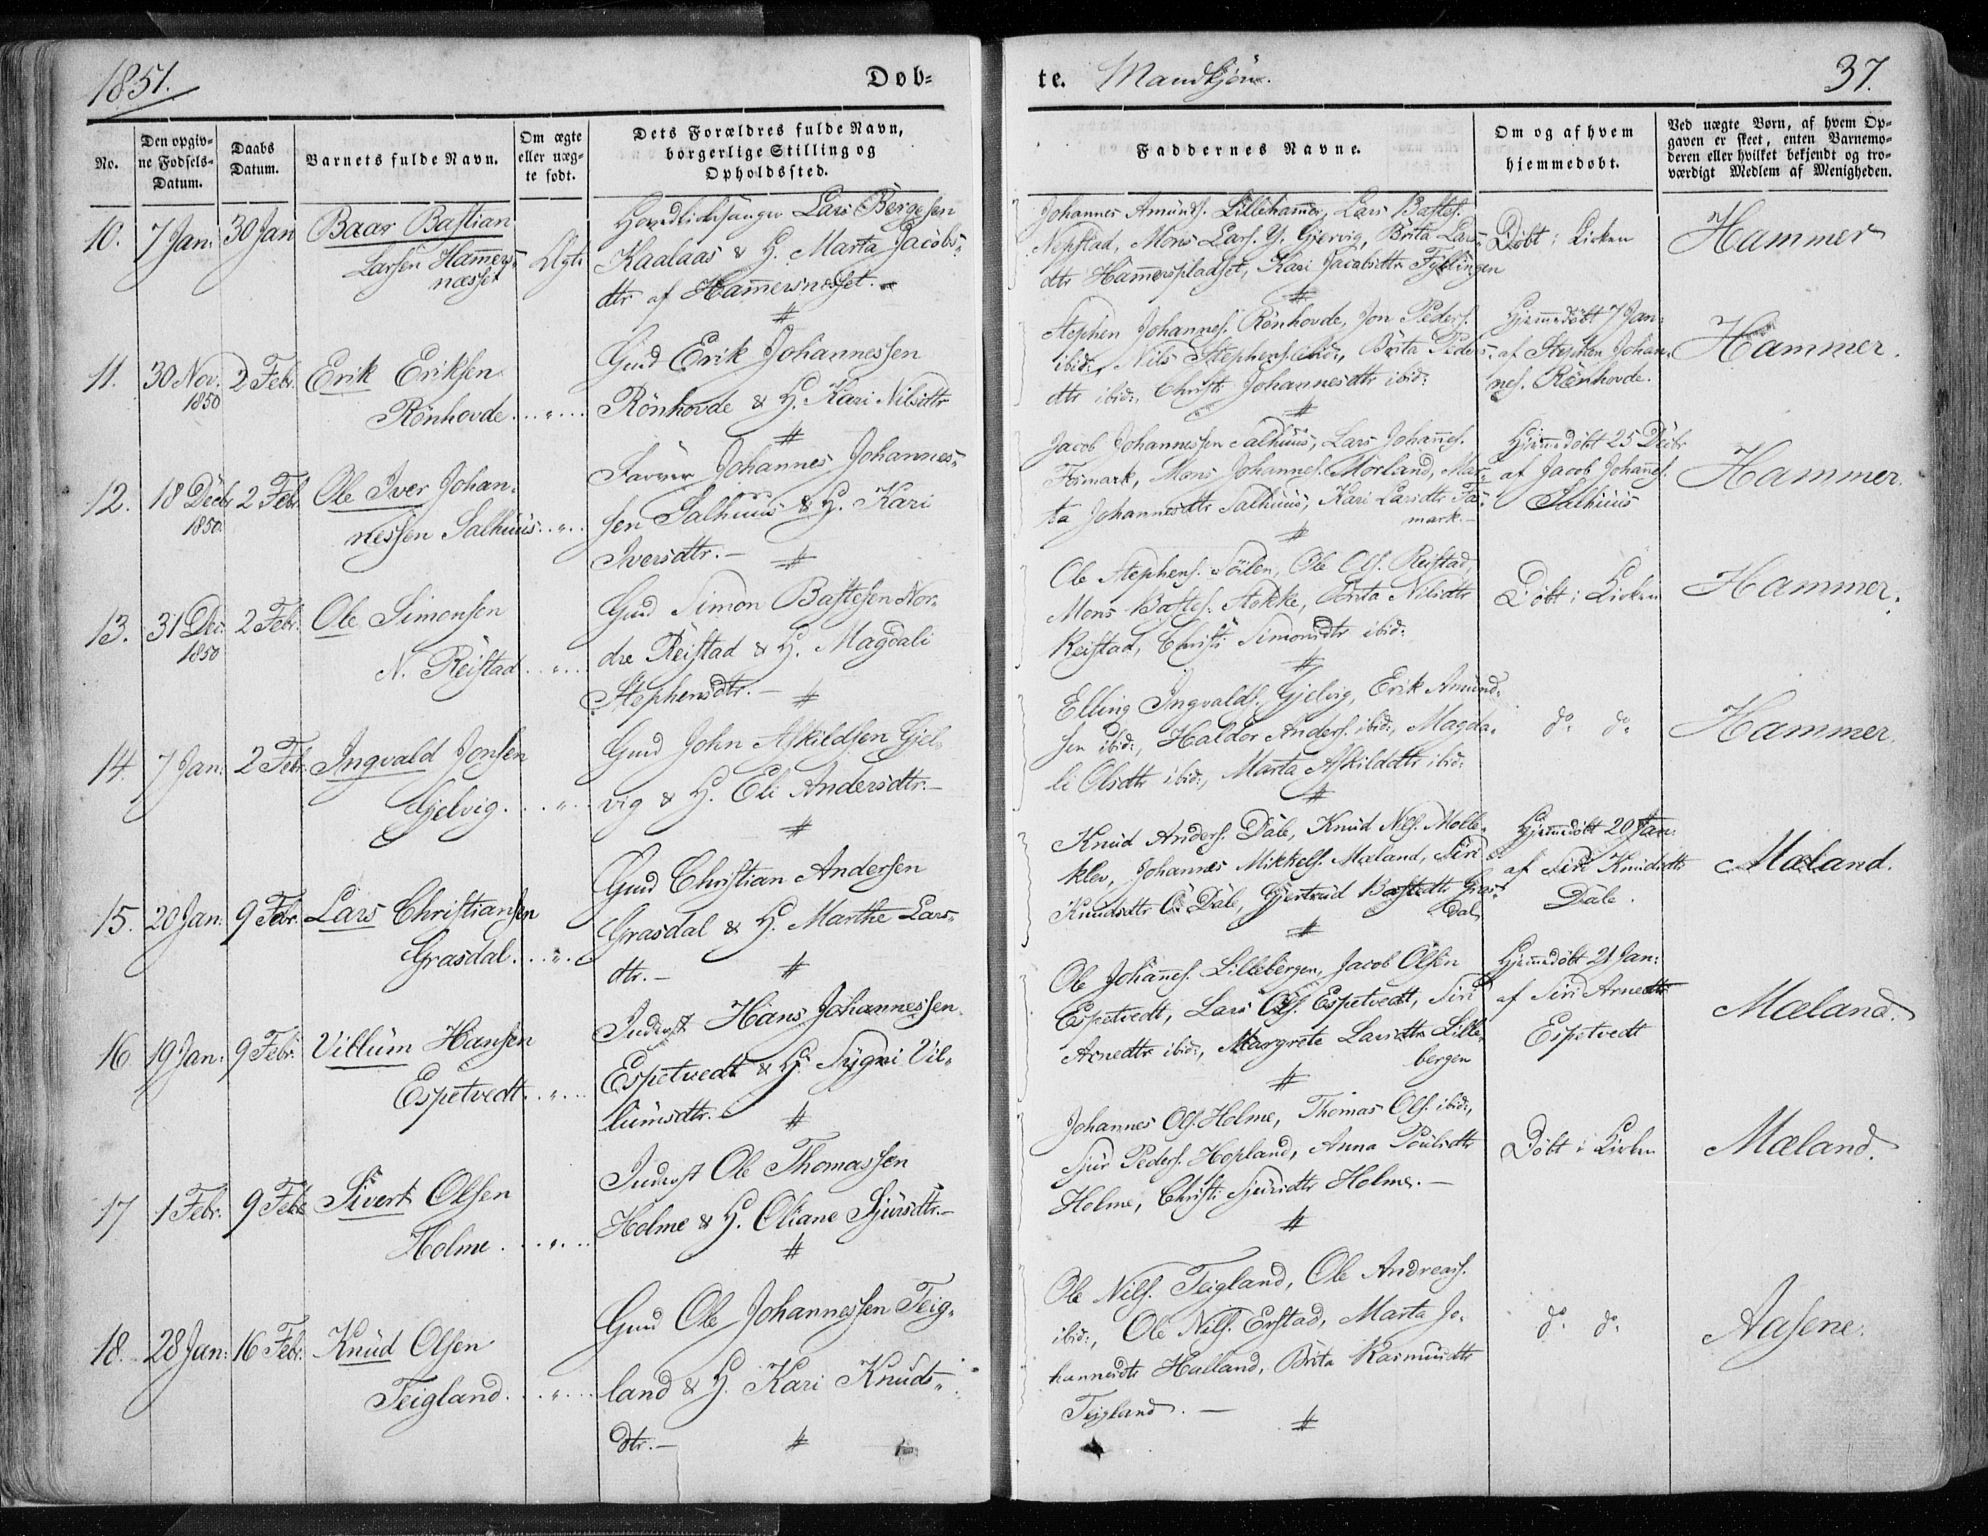 1851.
Døb-
te. Mandkjøn.
37.
No.
Den opgiv-
ne Fødsels-
Datum.
Daabs
Datum.
Barnets fulde Navn.
Om ægte
eller uæg-
te født.
Dets Forældres fulde Navn,
borgerlige Stilling og
Opholdssted.
Faddernes Navne.
Om og af hvem
hjemmedøbt.
Ved uægte Børn, af hvem Op-
gaven er skeet, enten Barnemo-
deren eller hvilket bekjendt og tro-
værdigt Medlem af Menigheden.
10. 7 Jan: 30 Jan Baar Bastian
Larsen Hamers-
næsset
Ægte
Lars Børgesen
Kaalaas & H. Marta Jacobs-
dtr af Hamersnesset.
Johannes Amunds. Lillehamer, Lars Bastes.
Nepstad, Mons Lars. Y. Gjervig, Brita Lars-
dtr Hamerspladset, Kari Jacobsdtr Fyllingen
Döbt i Kirken
Hammer
11. 30 Nov. 2 Febr. Erik Eriksen
1850
Rönhovde
Gmd Erik Johannessen
Rönhovde & H. Kari Nilsdtr
Stephen Johannes. Rönhovde, Jon Peders.
ibid:, Nils Stephens. ibid:, Brita Peders-
dtr ibid:, Christi Johannesdtr ibid:
Hjemedöbt 7 Jan:
af Stephen Johan-
nes. Rönhovde.
Hammer.
12. 18 Decbr 2 Febr. Ole Iver Johan-
1850.
nessen Salhuus
Farver Johannes Johannes-
sen Salhuus & H. Kari
Iversdtr.
Jacob Johannessen Salhuus, Lars Johanes.
Fosmark, Mons Johannes. Morland, Mar-
ta Johannesdtr Salhuus, Kari Larsdtr Fos-
mark.
Hjemedöbt 25 Decbr
af Jacob Johanes.
Salhuus
Hammer.
13. 31 Dec. 2 Febr. Ole Simonsen
1850
N. Reistad
Gmd Simon Bastesen Nor-
dre Reistad & H. Magdali
Stephensdtr.
Ole Stephens. Söilen, Ole Ols. Reistad,
Mons Bastes. Stokke, Brita Nilsdtr
Reistad, Christi Simonsdtr ibid:
Döbt i Kirken
Hammer.
14. 7 Jan: 2 Febr. Ingvald Jonsen
Gjelvig.
Gmd John Askildsen Gjel-
vig & H. Eli Andersdtr.
Elling Ingvalds. Gjelvig, Erik Amund-
sen ibid:, Haldor Anders. ibid:, Magda-
li Olsdtr ibid:, Marta Askilddtr ibid:
do. do.
Hammer
15. 20 Jan: 9 Febr. Lars Christiansen
Grasdal.
Gmd Christian Andersen
Grasdal & H. Marthe Lars-
dtr.
Knud Anders. Dale, Knud Nils. Molle-
klev, Johannes Mikkels. Mæland, Siri
Knudsdtr Dale, Gjertrud Bastedtr Gras-
dal,
Hjemedöbt 20 Jan:
af Siri Knudsdtr
Dale.
Mæland.
16 19 Jan: 9 Febr. Villum Hansen
Espetvedt.
Inderst Hans Johannessen
Espetvedt & H. Sygni Vil-
lumsdtr.
Ole Johanes. Lillebergen, Jacob Olsen
Espetvedt, Lars Ols. Espetvedt, Siri
Arnedtr ibid:, Margrete Larsdtr Lille-
bergen
Hjemedöbt 21 Jan:
af Siri Arnedtr
Espetvedt
Mæland.
17 1 Febr. 9 Febr Sivert Olsen
Holme.
Inderst Ole Thomassen
Holme & H. Oliane Sjursdtr.
Johannes Ols. Holme, Thomas Ols. ibid:,
Sjur Peders. Hopland, Anna Poulsdtr
Holme, Christi Sjursdtr Holme.
Döbt i Kirken
Mæland.
18. 28 Jan: 16 Febr. Knud Olsen
Teigland.
Gmd Ole Johannessen Teig-
land & H. Kari Knuds-
dtr.
Ole Nils. Teigland, Ole Andreas.
ibid:, Ole Nils. Erstad, Marta Jo-
hannesdtr Halland, Brita Rasmusdtr
Teigland.
do. do.
Aasene.